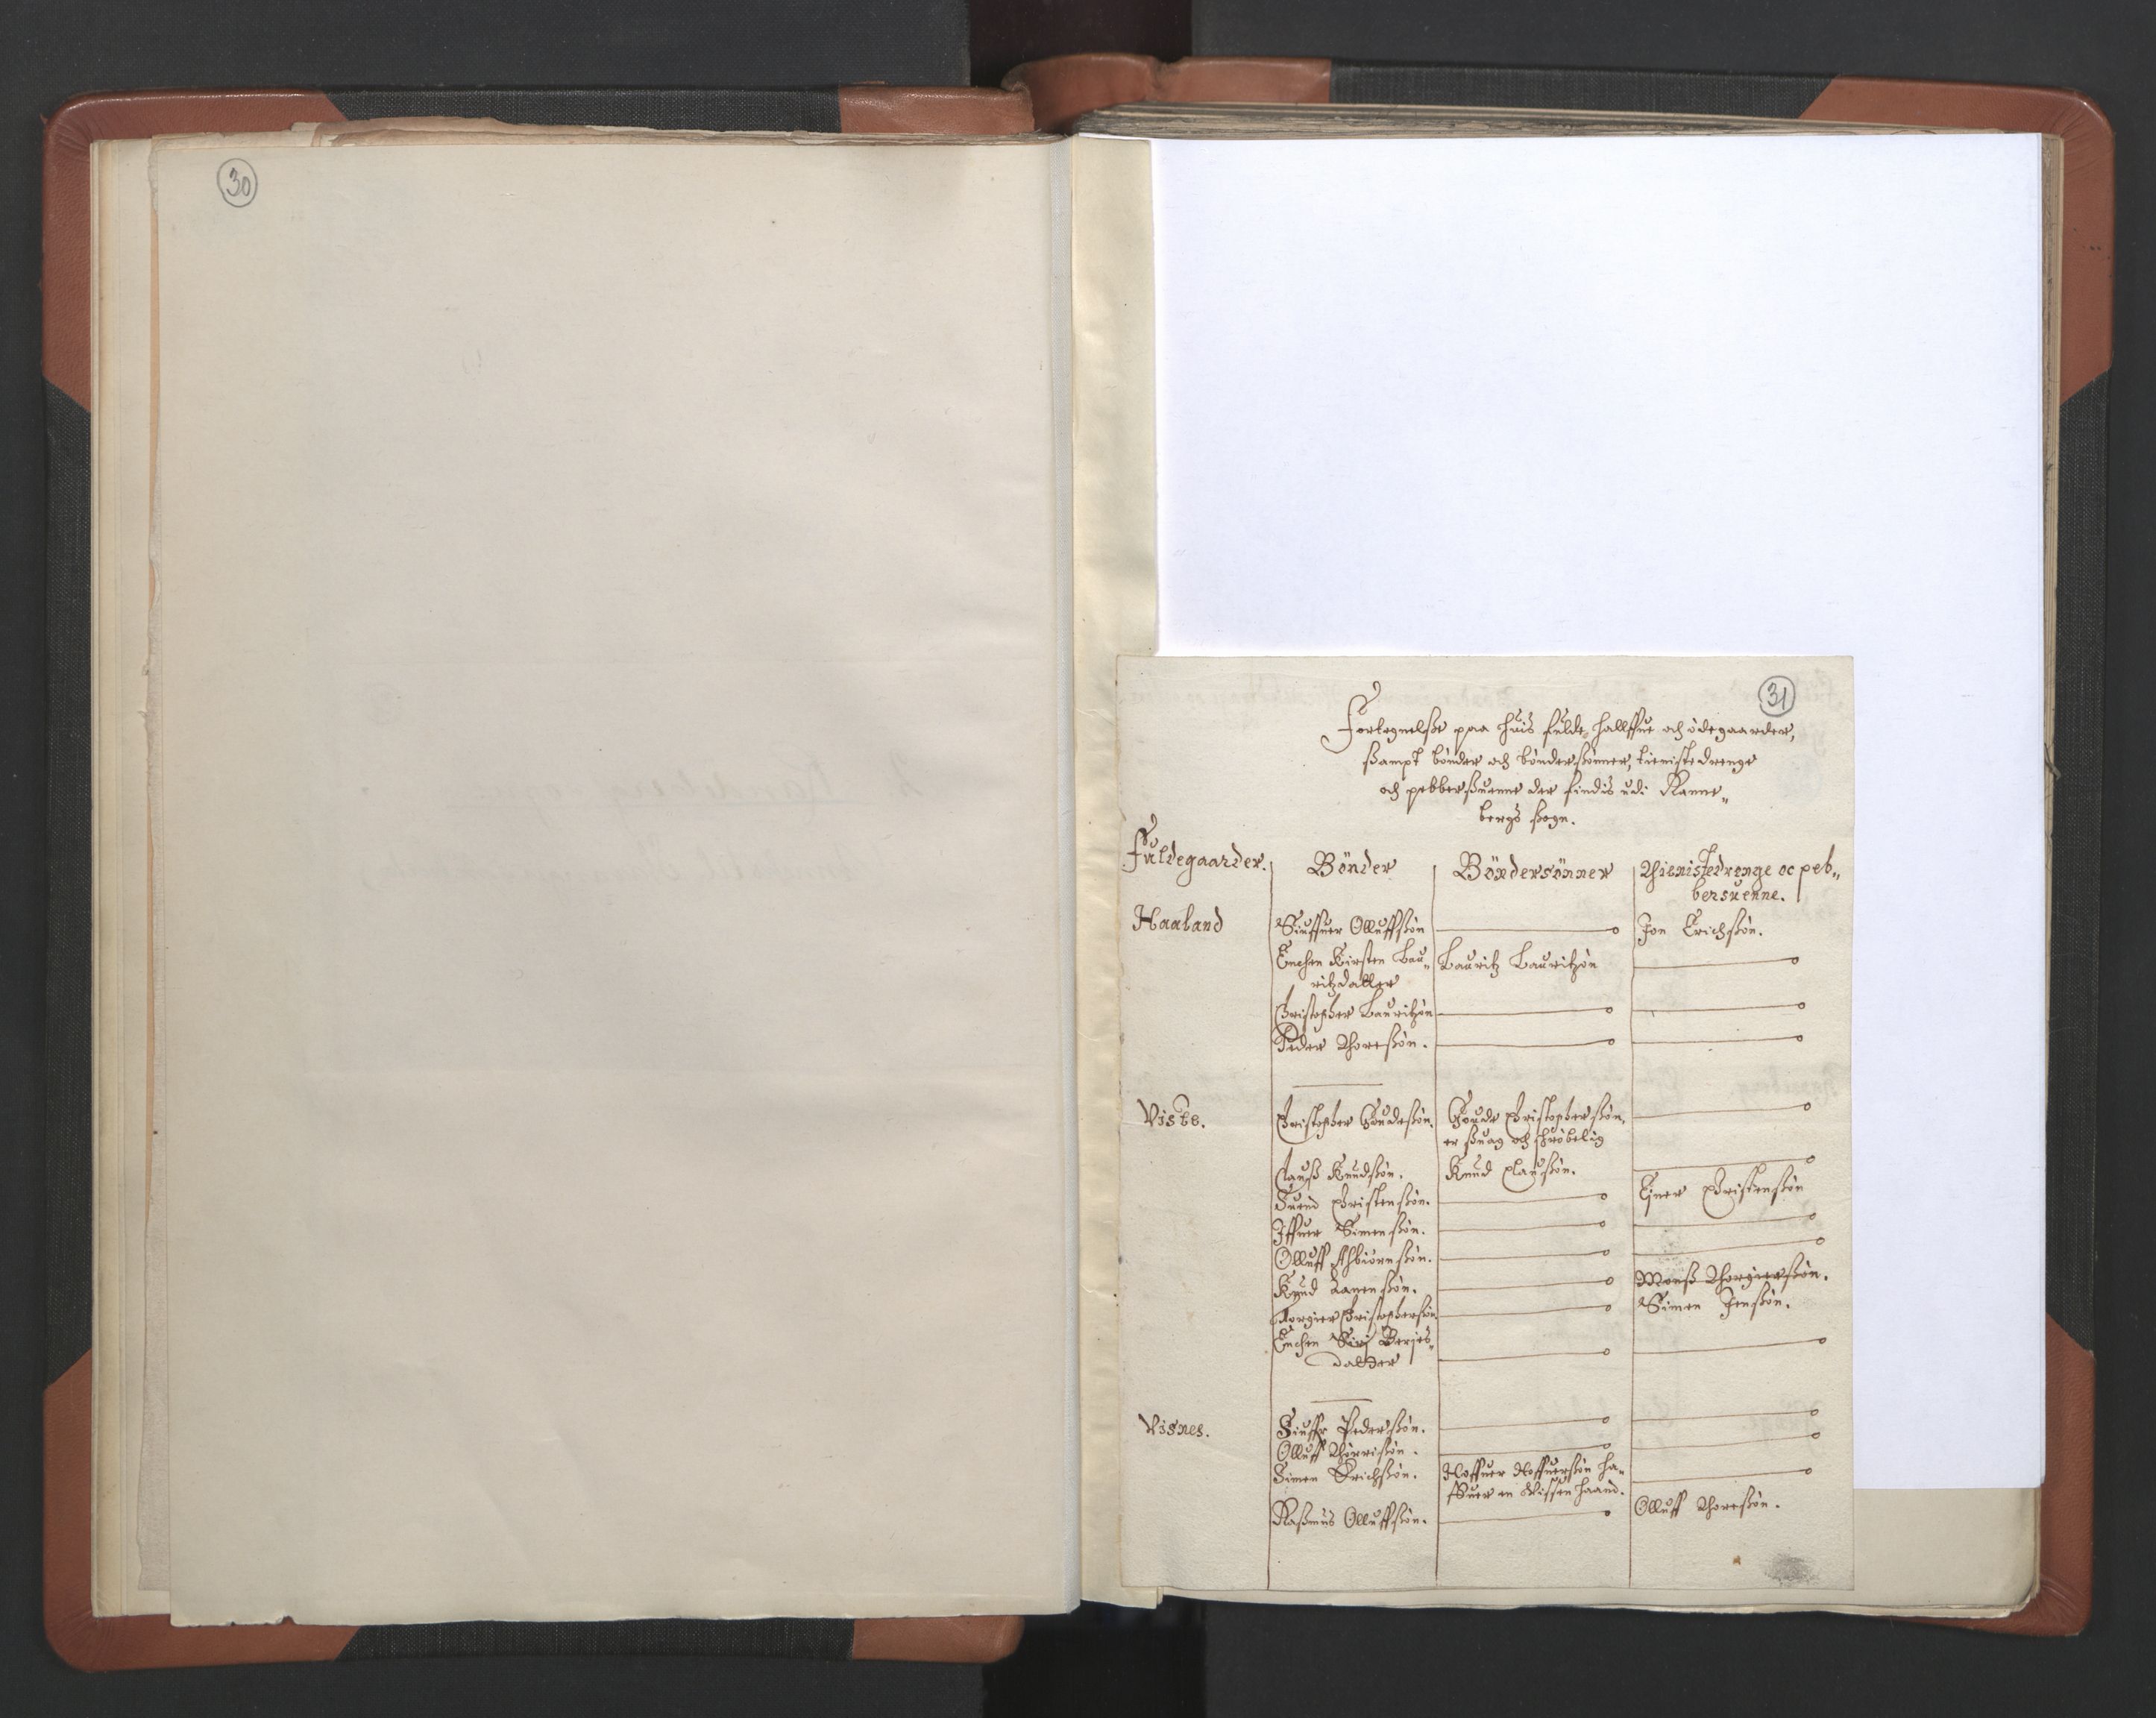 30
31
Fortegnelße paa huis fulde, hallffue och ödegaarder,
ßampt bönder och bönderßönner, tienistedrenge
och pebberßuenne der findis udi Ranne„
bergs ßogn.
Fuldegaarder. Bönder Böndersönner Thienistedrenge oc peb„
bersuenne.
Haaland Siuffuer Olluffßön Jon Erichßön.
Enchen Kirsten Lau„ Lauritz Lauritzön
ritzdatter
Christopher Lauritzön
Peder Thoreßön.
Viste. Christopher Goudeßön. Goude Christopherßön,
er ßuag och schröbelig
Clauß Knudßön. Knud Claußön.
Suend Christenßön. Ejner Christenßön
Iffuer Simenßön.
Olluff Aßbiörnßön.
Knud Aanenßön. Monß Thorgierßön.
Torgier Christopherßön Simen Jenßön.
Enchen Siri Berjes„
datter
Visnes. Siuffr Pederßön.
Olluff Thörrisßön.
Simen Erichßön. Roffuer Roffuerßön ha„
ffuer en Vissen haand.
Raßmus Olluffßön. Olluff Thoreßön.